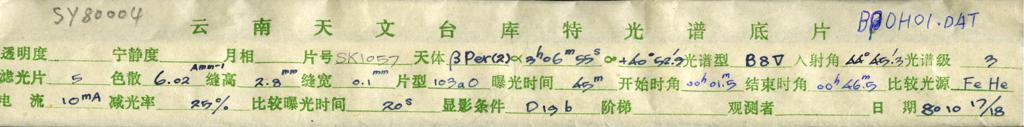 SY80004 云南天文台库特光谱底片 BP0H01.DAT
透明度 宁静度 月相 片号 SK1057 天体 β Per(2) α 3h06m55s δ +40°52.9 光谱型 B8V 入射角 44°45.3 光谱级 3
滤光片 5 色散 6.02 Amm-1 缝高 2.8mm 缝宽 0.1mm 片型 103aO 曝光时间 45m 开始时角 00h01.5m 结束时角 00h46.5m 比较光源 FeHe
电流 10mA 减光率 25% 比较曝光时间 20s 显影条件 D19b 阶梯 观测者 日期 8010 17/18